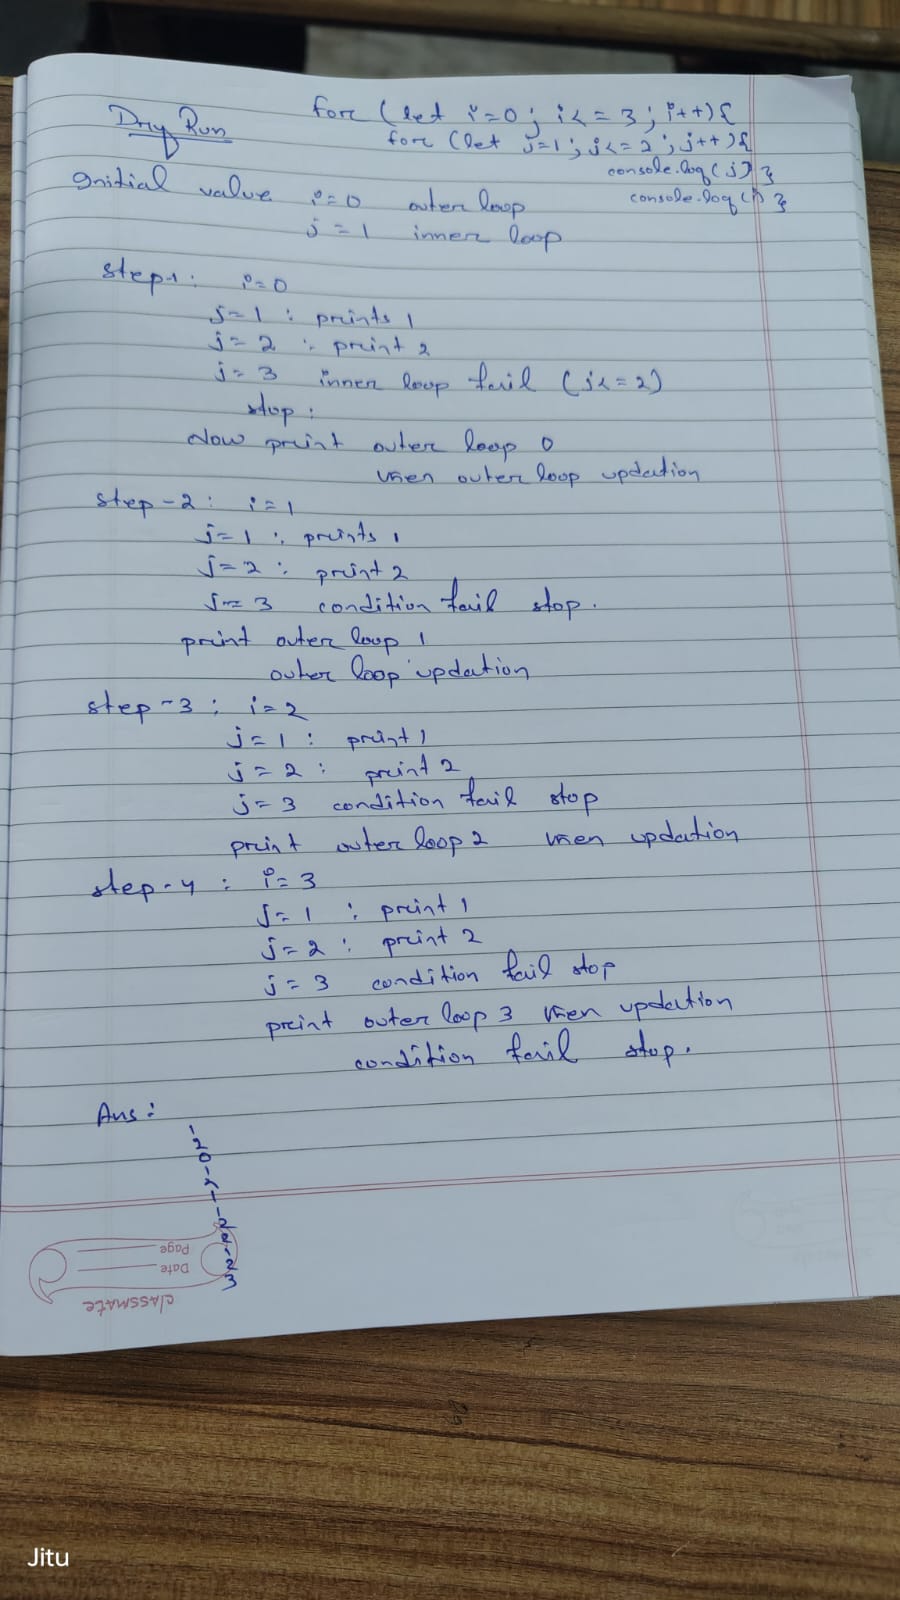 Dry Run
for (let i=0; i<=3; i++){
for (let j=1; j<=2; j++){
console.log(j) }
console.log(i) }
Initial value i=0 outer loop
j=1 inner loop
step-1: i=0
j=1 : prints 1
j=2 : print 2
j=3 inner loop fail (j<=2)
stop.
Now print outer loop 0
then outer loop updation
step-2: i=1
j=1 : prints 1
j=2 : print 2
j=3 condition fail stop.
print outer loop 1
outer loop updation
step-3: i=2
j=1 : print 1
j=2 : print 2
j=3 condition fail stop
print outer loop 2 then updation
step-4 : i=3
j=1 : print 1
j=2 : print 2
j=3 condition fail stop
print outer loop 3 then updation
condition fail stop.
Ans:
1
2
0
1
2
1
1
2
2
1
2
3
classmate
Date
Page
Jitu